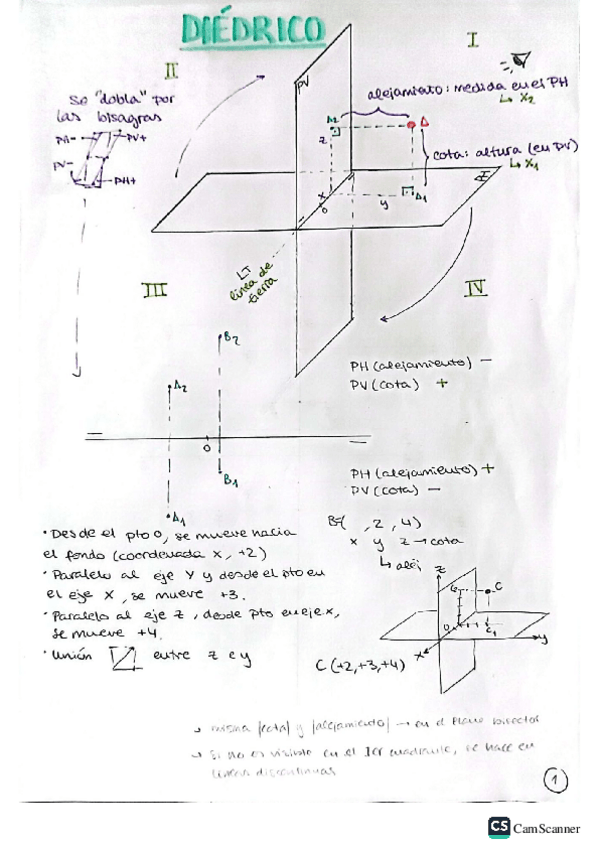 DIÉDRICO
I
II
Se "dobla" por
las bisagras
PH-
PV+
PV-
PH+
PV
alejamiento: medida en el PH
↳ X2
A2
A
z
cota: altura (en PV)
↳ X1
x
O
y
A1
LT
línea de
tierra
III
IV
B2
A2
O
B1
A1
PH (alejamiento) -
PV (cota) +
PH (alejamiento) +
PV (cota) -
• Desde el pto O, se mueve hacia
el fondo (coordenada x, +2)
• Paralelo al eje Y y desde el pto en
el eje X, se mueve +3.
• Paralelo al eje z, desde pto en eje x,
se mueve +4.
• Unión entre z e y
, 2, 4)
x y z → cota
↳ alej
z
C
O
C1
y
x
C (+2,+3,+4)
→ misma |cota| y |alejamiento| → en el Plano bisector
→ Si no es visible en el 1er cuadrante, se hace en
líneas discontinuas
1
CS CamScanner